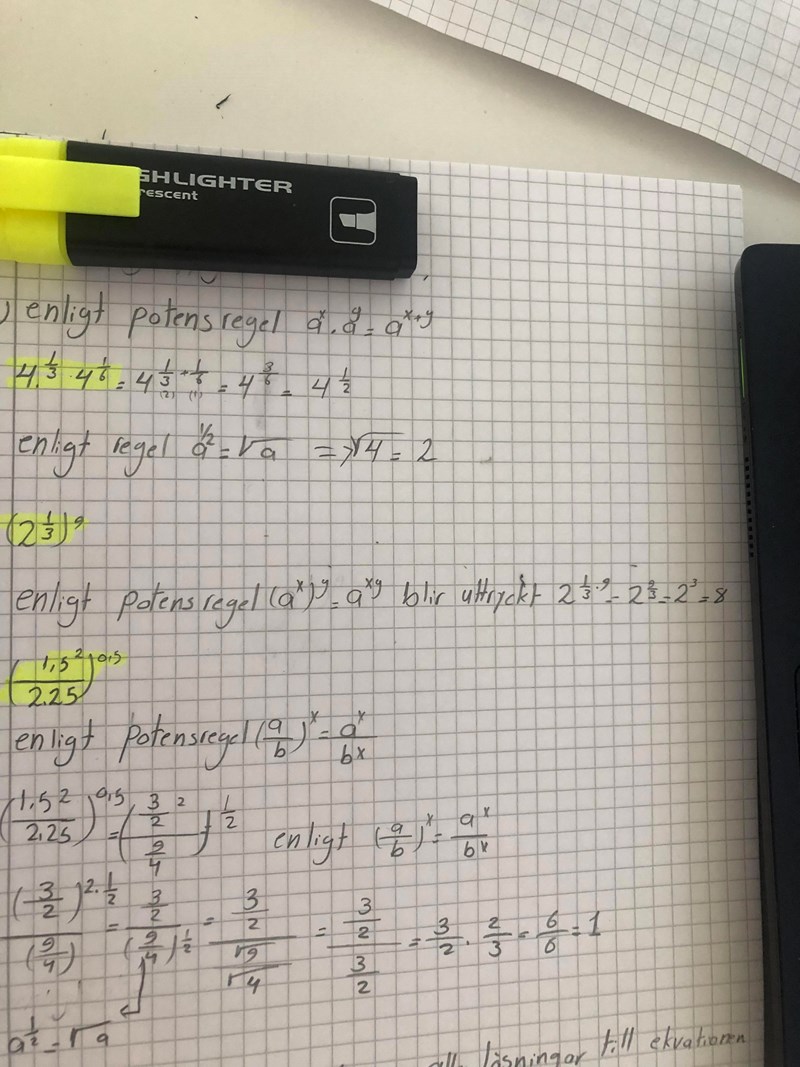 GHLIGHTER
rescent
) enligt potensregel a^x · a^y = a^(x+y)
4^(1/3) · 4^(1/6) = 4^(1/3 + 1/6) = 4^(3/6) = 4^(1/2)
(2) (1)
enligt regel a^(1/2) = √a => √4 = 2
(2^(1/3))^9
enligt potensregel (a^x)^y = a^(xy) blir uttryckt 2^(1/3 · 9) = 2^(9/3) = 2^3 = 8
(1,5^2 / 2.25)^0,5
enligt potensregel (a/b)^x = a^x / b^x
(1,5^2 / 2.25)^0,5 = ((3/2)^2 / (9/4))^(1/2) enligt (a/b)^x = a^x / b^x
(3/2)^(2·1/2) / (9/4) = (3/2) / (9/4)^(1/2) = (3/2) / (√9/√4) = (3/2) / (3/2) = 3/2 · 2/3 = 6/6 = 1
a^(1/2) = √a
lösningar till ekvationen